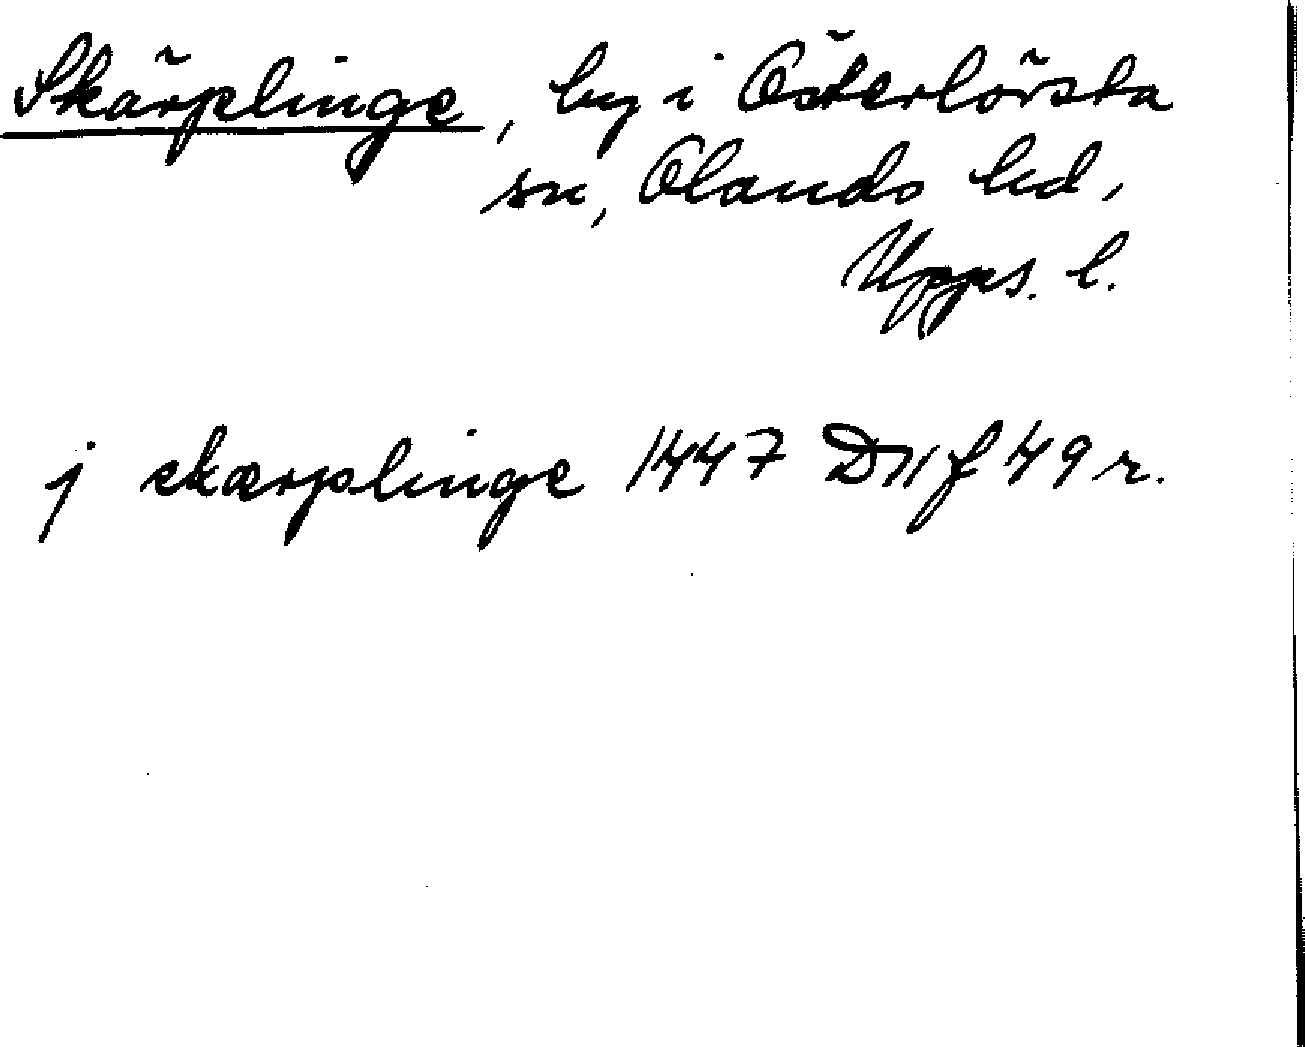 Skärplinge, by i Österlövsta
sn, Olands hd,
Upps. l.
j skærplinge 1447 D11 f 49 r.